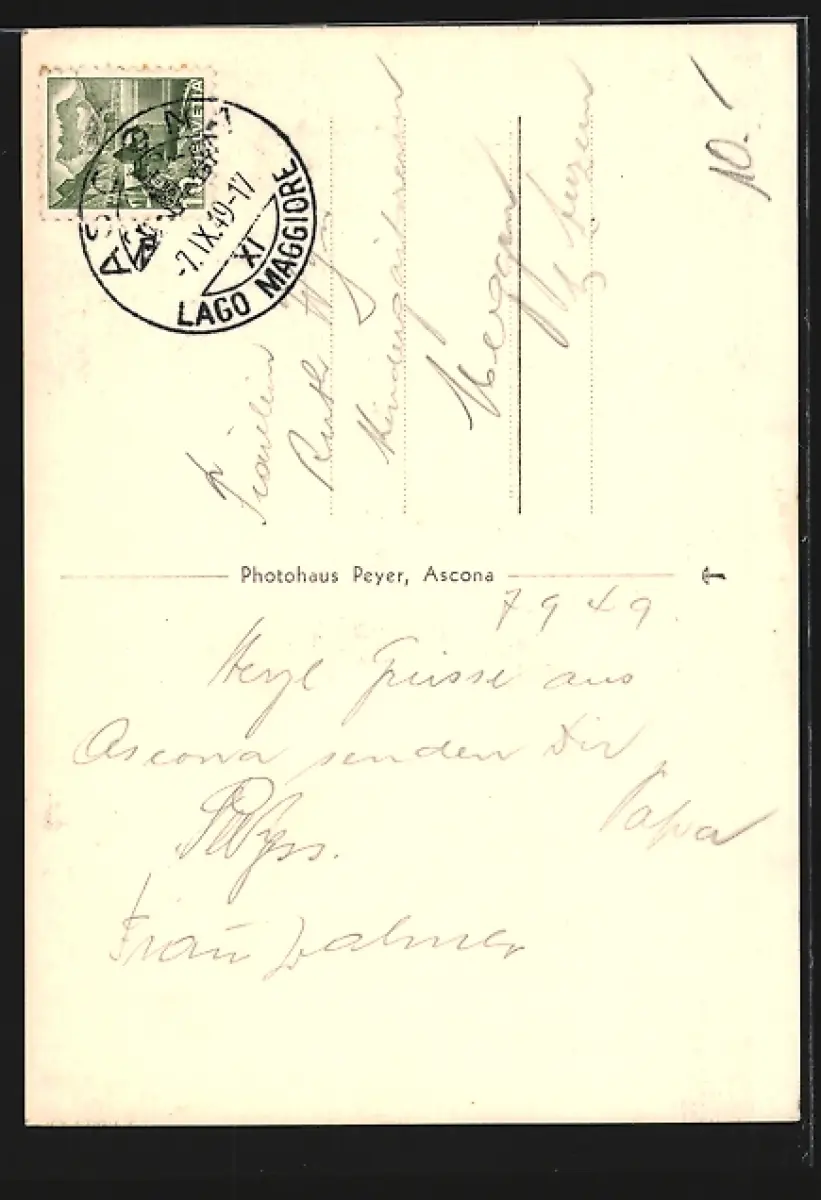 HELVETIA
ASCONA
-7.IX.49-17
XI
LAGO MAGGIORE
10.-
Fräulein
Ruth Wyss
Kindergärtnerin
Meggen
b/ Luzern
Photohaus Peyer, Ascona
7 9 49.
Herzl Grüsse aus
Ascona senden Dir
Papa
Wyss.
Frau